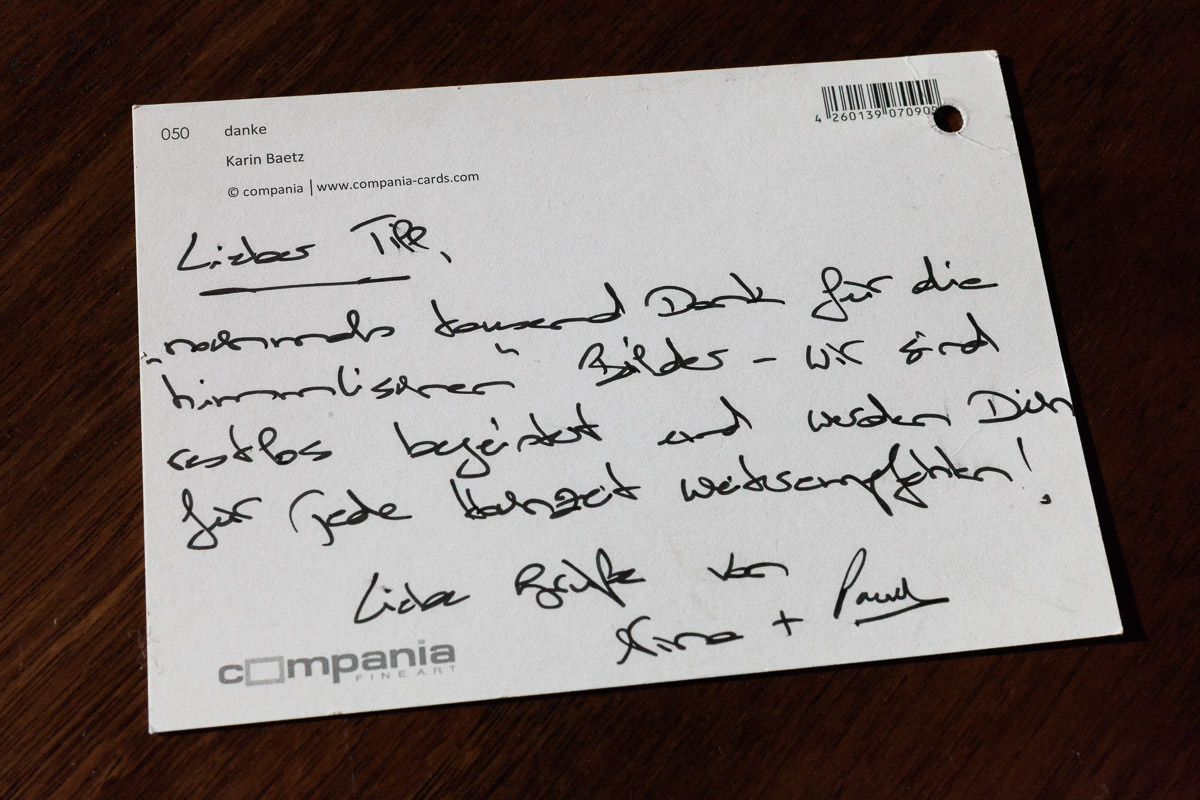 050 danke
Karin Baetz
© compania | www.compania-cards.com
4 260139 07090
Lieber
nochmals tausend Dank für die
"himmlischen" Bilder – wir sind
restlos begeistert und werden Dich
für jede Hochzeit weiterempfehlen!
Liebe Grüße von
Nina + Paul
compania
FINE ART